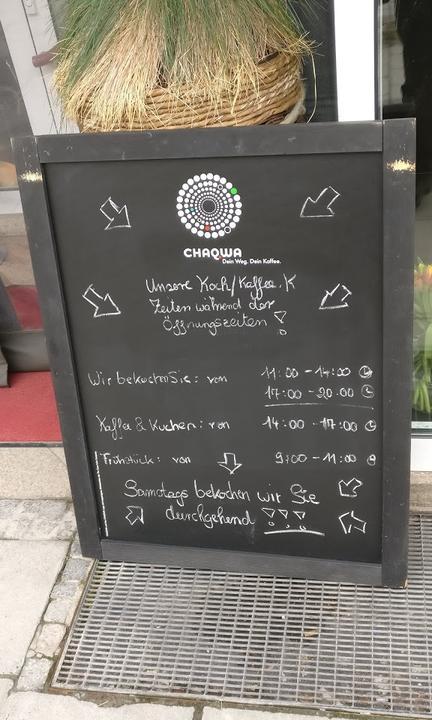 CHAQWA
Dein Weg. Dein Kaffee.
Unsere Koch/Kaffee. K
Zeiten während der
Öffnungszeiten !
Wir bekochen Sie: von 11:00 - 14:00
17:00 - 20:00
Kaffee & Kuchen: von 14:00 - 17:00
Frühstück: von 9:00 - 11:00
Samstags bekochen wir Sie
durchgehend !!!